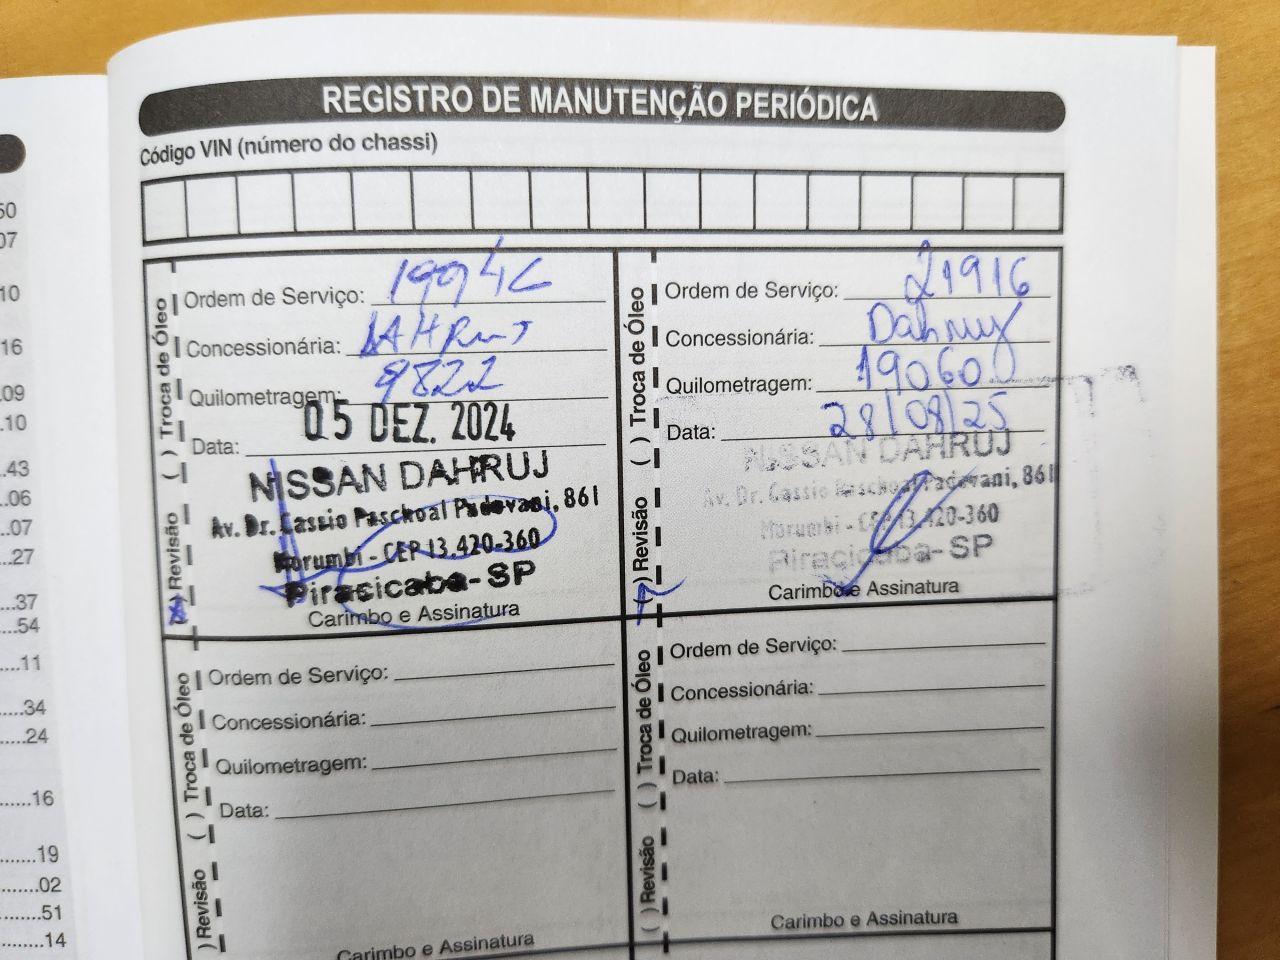 REGISTRO DE MANUTENÇÃO PERIÓDICA
Código VIN (número do chassi)
Ordem de Serviço: 19946
Concessionária: DAHRUJ
Quilometragem: 9822
Data: 05 DEZ. 2024
NISSAN DAHRUJ
Av. Dr. Cassio Paschoal Padovani, 861
Morumbi - CEP 13.420-360
Piracicaba-SP
Carimbo e Assinatura
( ) Revisão ( ) Troca de Óleo
Ordem de Serviço: 21916
Concessionária: Dahruj
Quilometragem: 19060
Data: 28/08/25
NISSAN DAHRUJ
Av. Dr. Cassio Paschoal Padovani, 861
Morumbi - CEP 13.420-360
Piracicaba-SP
Carimbo e Assinatura
( ) Revisão ( ) Troca de Óleo
Ordem de Serviço:
Concessionária:
Quilometragem:
Data:
Carimbo e Assinatura
) Revisão ( ) Troca de Óleo
Ordem de Serviço:
Concessionária:
Quilometragem:
Data:
Carimbo e Assinatura
( ) Revisão ( ) Troca de Óleo
50
07
10
16
.09
.10
.43
.06
..07
...27
...37
....54
....11
.....34
.....24
......16
.......19
.......02
........51
........14